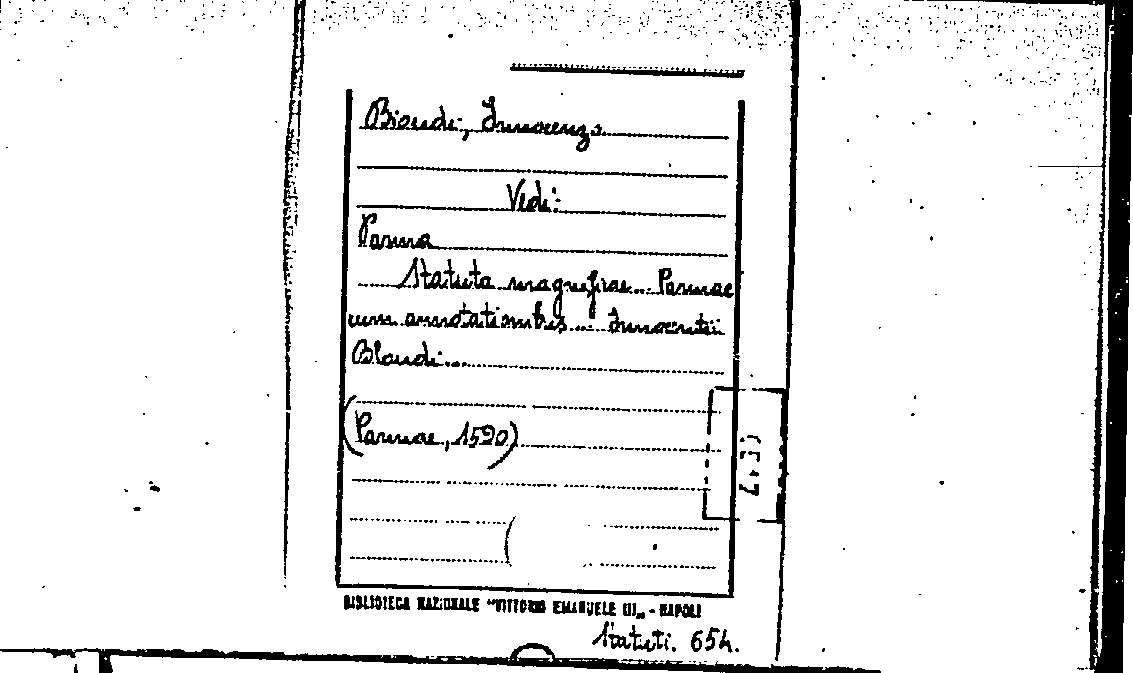 Biondi, Innocenzo
Vedi:
Parma
Statuta magnificae... Parmae
cum annotationibus... Innocentii
Blondi...
(Parmae, 1590)
BIBLIOTECA NAZIONALE "VITTORIO EMANUELE III" - NAPOLI
Statuti. 654.